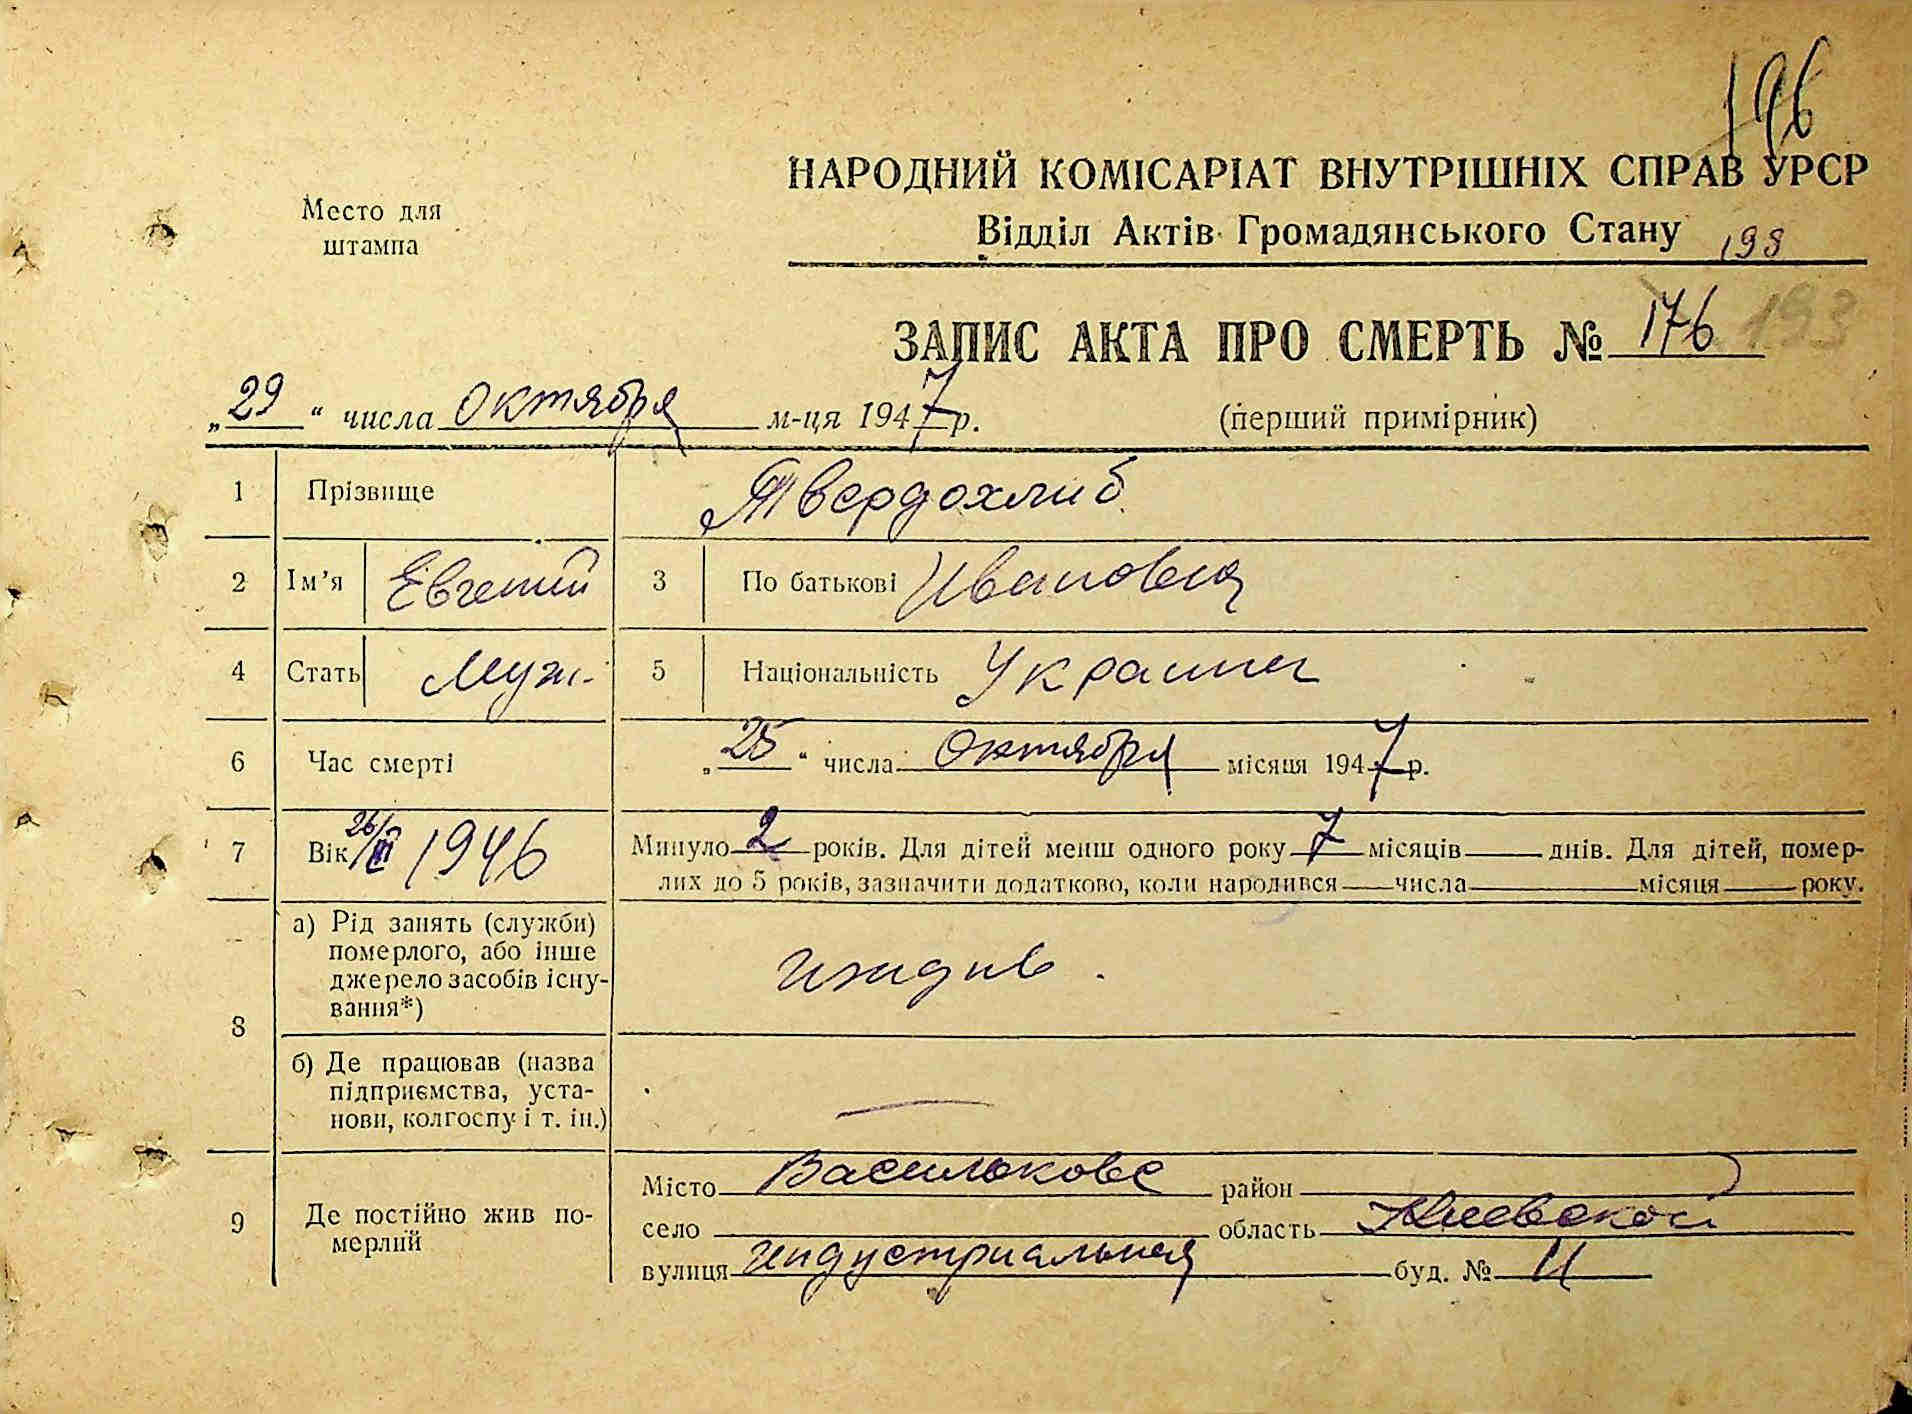 196
НАРОДНИЙ КОМІСАРІАТ ВНУТРІШНІХ СПРАВ УРСР
Место для
штампа
Відділ Актів Громадянського Стану 198
ЗАПИС АКТА ПРО СМЕРТЬ № 176 193
„29“ числа Октября м-ця 1947 р. (перший примірник)
1 Прізвище Твердохлиб
2 Ім’я Евгений 3 По батькові Иванович
4 Стать Муж. 5 Національність Украинец
6 Час смерті „25“ числа Октября місяця 1947 р.
7 Вік 26/III 1946 Минуло 2 років. Для дітей менш одного року 7 місяців днів. Для дітей, помер-
лих до 5 років, зазначити додатково, коли народився числа місяця року.
8 а) Рід занять (служби)
померлого, або інше
джерело засобів існу-
вання*) иждив.
б) Де працював (назва
підприємства, уста-
нови, колгоспу і т. ін.) —
9 Де постійно жив по-
мерлий
Місто Васильков район
село область Киевской
вулиця Индустриальная буд. № 11